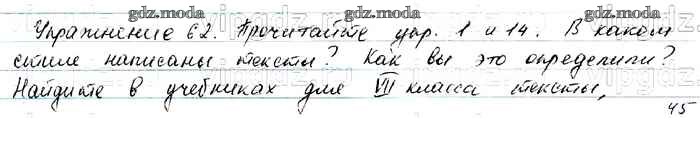 gdz.moda gdz.moda gdz.moda
Упражнение 62. Прочитайте упр. 1 и 14. В каком
стиле написаны тексты? Как вы это определили?
Найдите в учебниках для VII класса тексты,
45